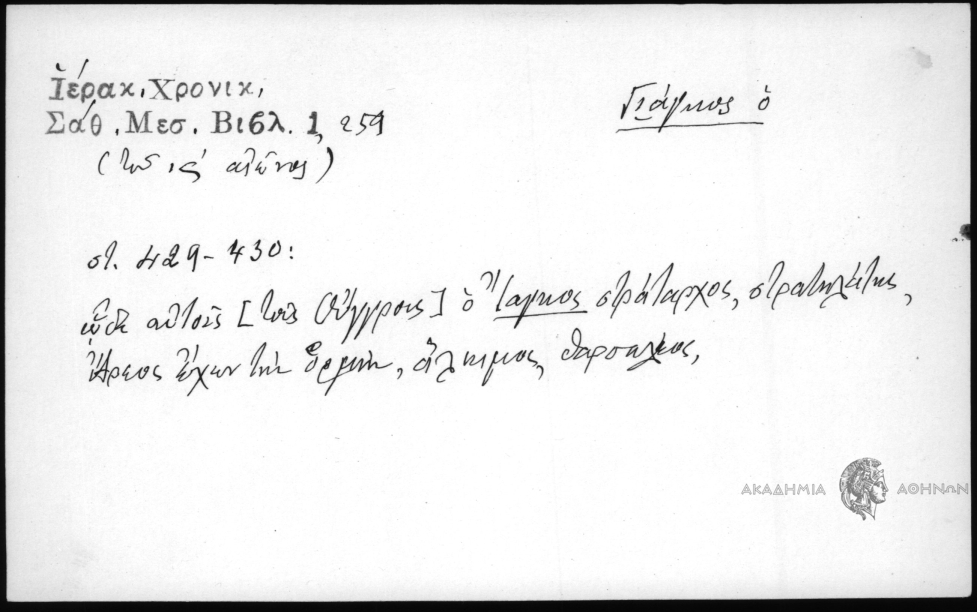 Ἱέρακ. Χρονικ.
Γιάγκος ὁ
Σάθ. Μεσ. Βιβλ. 1, 259
(τοῦ ις´ αἰῶνος)
στ. 429-430:
ὧδε αὐτοῖς [τοῖς Οὕγγροις] ὁ Ἴαγκος στράταρχος, στρατηλάτης,
Ἄρεος ἔχων τὴν ὁρμὴν, ἄλκιμος, θαρσαλέος,
ΑΚΑΔΗΜΙΑ ΑΘΗΝΩΝ